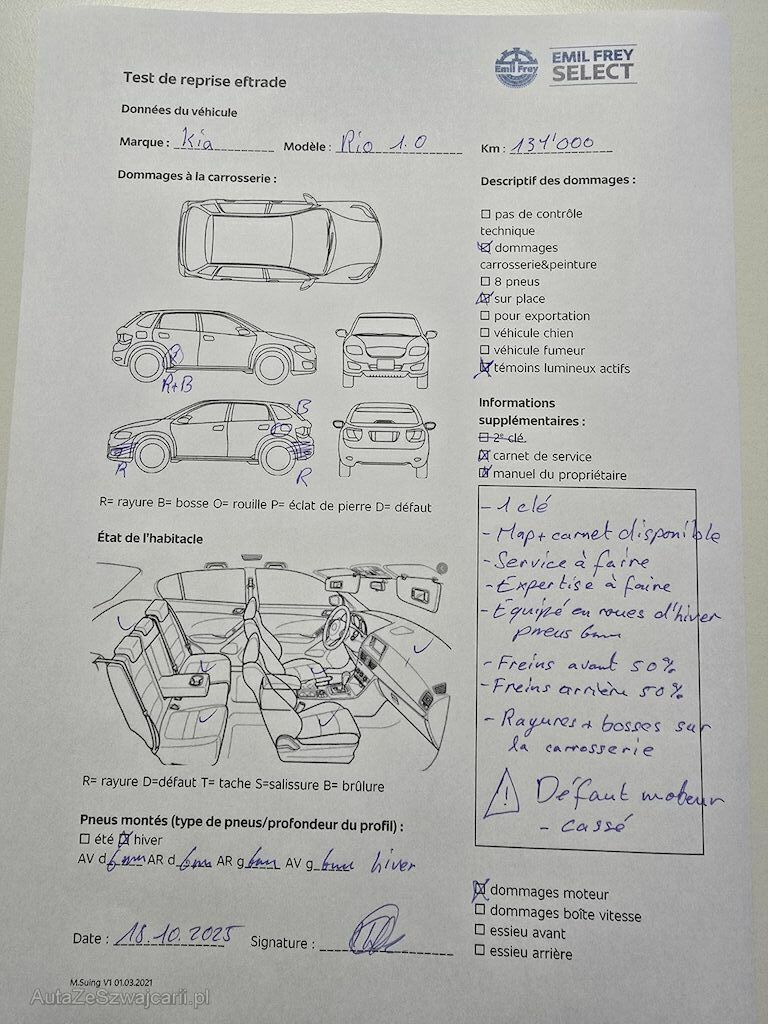 Test de reprise eftrade
Emil Frey
EMIL FREY
SELECT
Données du véhicule
Marque : Kia Modèle : Rio 1.0 Km : 134'000
Dommages à la carrosserie :
R+B
B
R
R
R= rayure B= bosse O= rouille P= éclat de pierre D= défaut
État de l'habitacle
R= rayure D=défaut T= tache S=salissure B= brûlure
Pneus montés (type de pneus/profondeur du profil) :
☐ été ☒ hiver
AV d 6mm AR d 6mm AR g 6mm AV g 6mm hiver
Date : 18.10.2025 Signature :
M.Suing V1 01.03.2021
Descriptif des dommages :
☐ pas de contrôle
technique
☒ dommages
carrosserie&peinture
☐ 8 pneus
☒ sur place
☐ pour exportation
☐ véhicule chien
☐ véhicule fumeur
☒ témoins lumineux actifs
Informations
supplémentaires :
☐ 2e clé.
☒ carnet de service
☒ manuel du propriétaire
- 1 clé
- Map + carnet disponible
- Service à faire
- Expertise à faire
- Equipé en roues d'hiver
pneus 6mm
- Freins avant 50%
- Freins arrière 50%
- Rayures + bosses sur
la carrosserie
! Défaut moteur
- cassé
☒ dommages moteur
☐ dommages boîte vitesse
☐ essieu avant
☐ essieu arrière
AutaZeSzwajcarii.pl